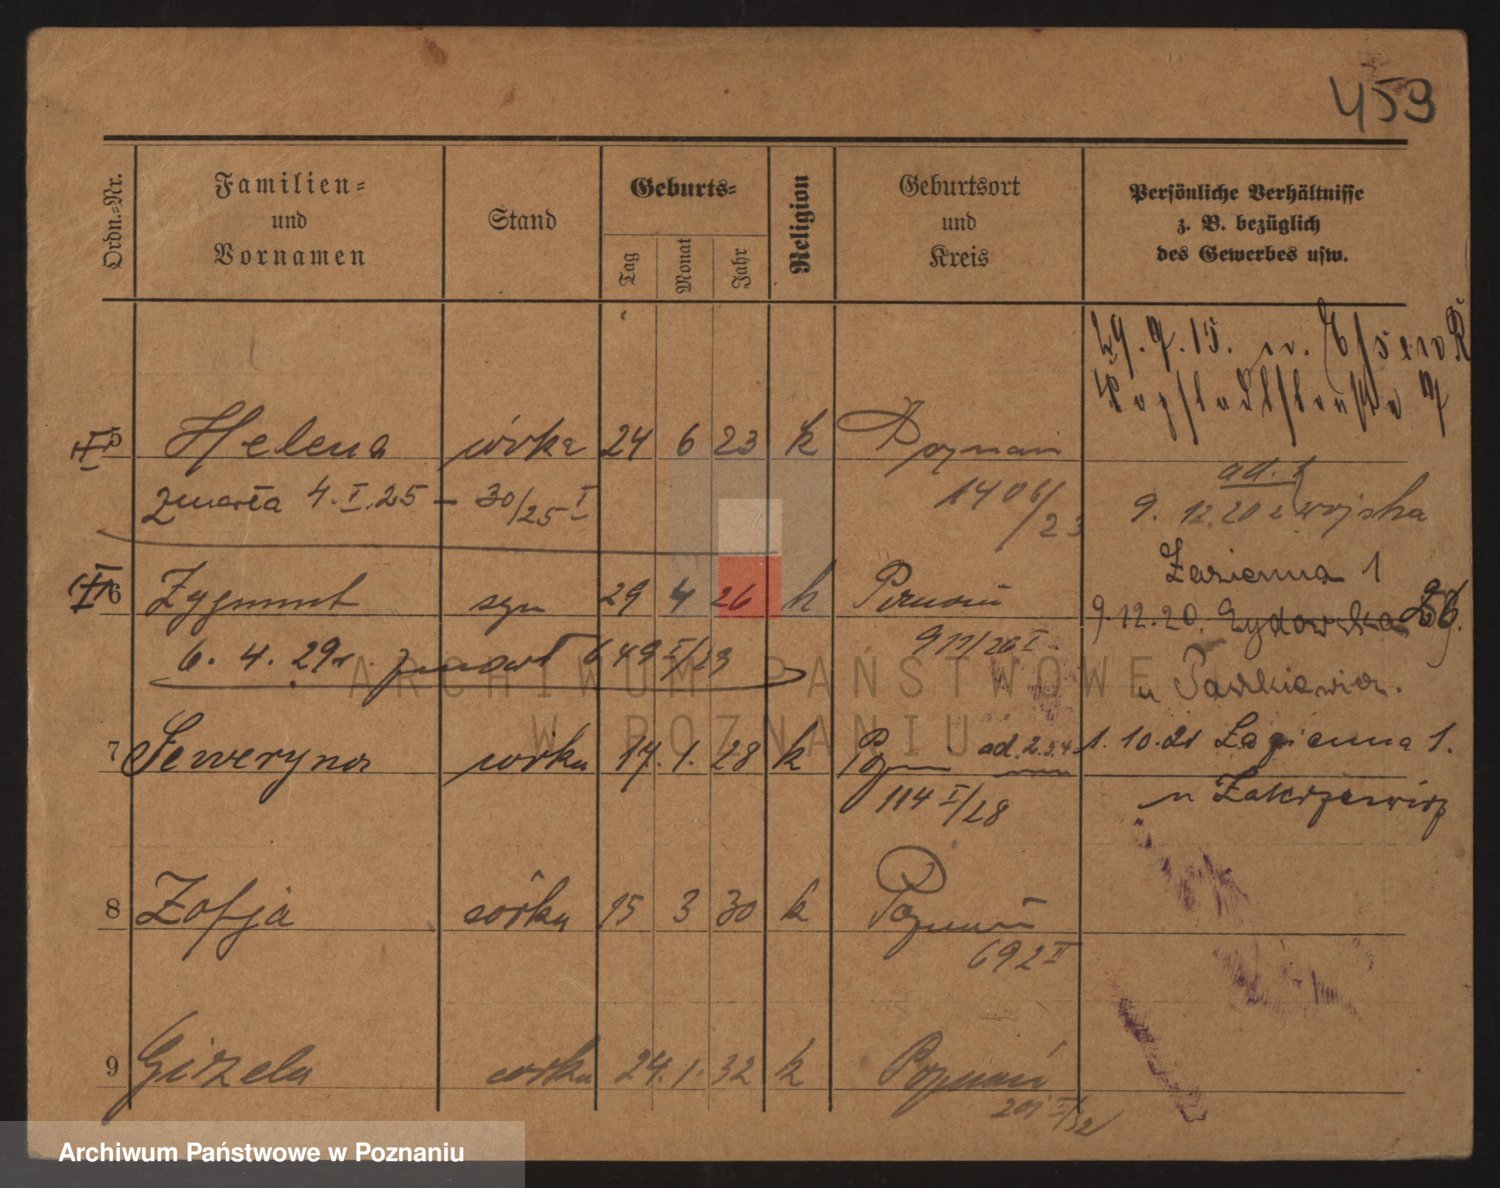 459
Ordn.=Nr.
Familien=
und
Vornamen
Stand
Geburts=
Tag
Monat
Jahr
Religion
Geburtsort
und
Kreis
Persönliche Verhältnisse
z. B. bezüglich
des Gewerbes usw.
29.9.15.
5 Helena córka 24 6 23 k Poznań
zmarła 4.I.25 – 30/25 I
1406/23
ad. 1
9.12.20 z wojska
6 Zygmunt syn 29 4 26 k Poznań
Łazienna 1
9.12.20. Żydowska 26.
6.4.29r. zmarł 649 II/23
911/26 I
u
7 Seweryna córka 17.1.28 k Pozn ad. 2.
1.10.21 Łazienna 1.
114 I/28
u
8 Zofja córka 15 3 30 k Poznań
692 II
9 Gizela córka 24.1.32 k Poznań
201 I/32
ARCHIWUM PAŃSTWOWE
W POZNANIU
Archiwum Państwowe w Poznaniu